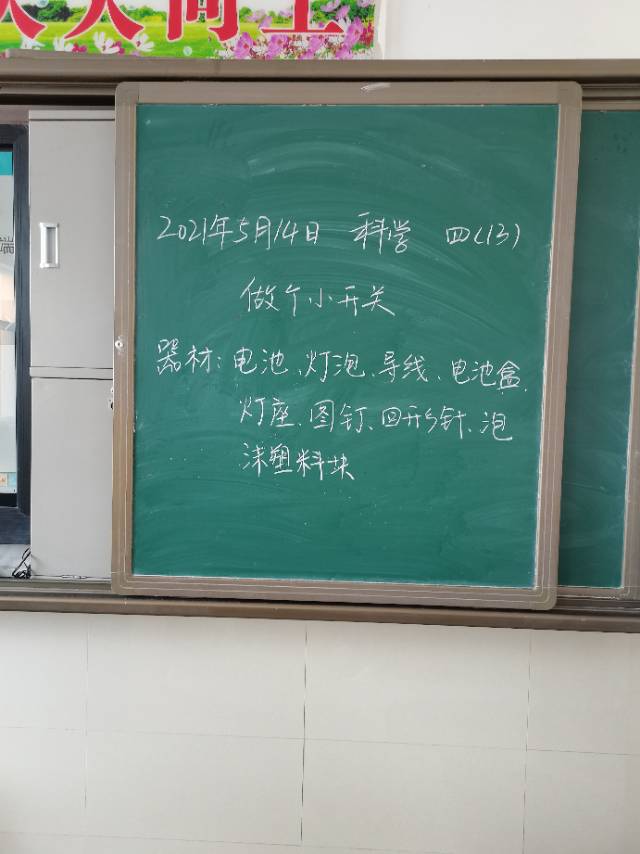 天天向上
2021年5月14日 科学 四(13)
做个小开关
器材:电池、灯泡、导线、电池盒、
灯座、图钉、回形针、泡
沫塑料块
端